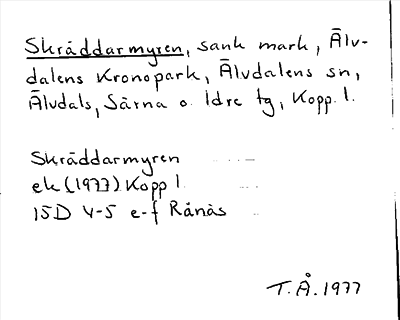 Skräddarmyren, sank mark, Älv-
dalens Kronopark, Älvdalens sn,
Älvdals, Särna o. Idre tg, Kopp. l.
Skräddarmyren
ek (1977) Kopp l.
15D 4-5 e-f Rånäs
T.Å. 1977